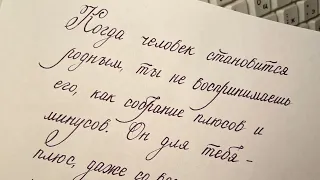 Когда человек становится
родным, ты не воспринимаешь
его, как собрание плюсов и
минусов. Он для тебя -
плюс, даже со